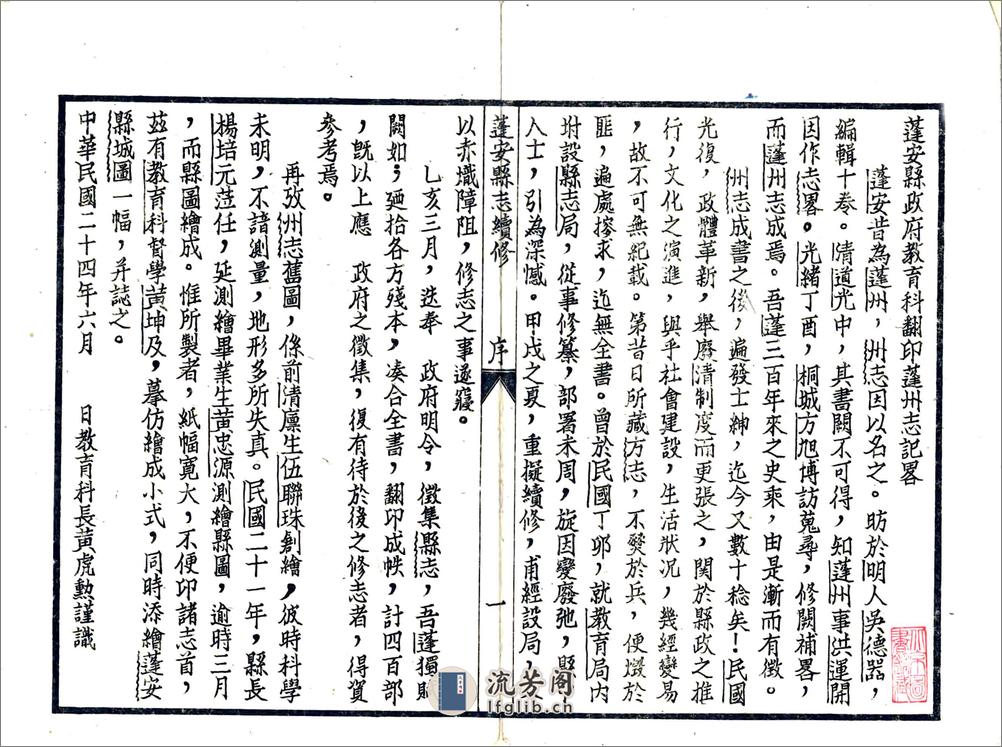 蓬安縣政府教育科翻印蓬州志記畧
蓬安昔為蓬州，州志因以名之。昉於明人吳德器，
編輯十卷。清道光中，其書闕不可得，知蓬州事洪運開
因作志畧。光緒丁酉，桐城方旭博訪蒐尋，修闕補畧，
而蓬州志成焉。吾蓬三百年來之史乘，由是漸而有徵。
州志成書之後，遍發士紳，迄今又數十稔矣！民國
光復，政體革新，舉廢清制度而更張之，関於縣政之推
行，文化之演進，與乎社會建設，生活狀況，幾經變易
，故不可無紀載。第昔日所藏方志，不燹於兵，便燬於
匪，遍處搜求，迄無全書。曾於民國丁卯，就教育局内
坿設縣志局，從事修纂，部署未周，旋因變廢弛，縣
人士，引為深憾。甲戌之夏，重擬續修，甫經設局，
蓬安縣志續修 序 一
以赤熾障阻，修志之事遂寢。
乙亥三月，迭奉 政府明令，徵集縣志，吾蓬獨
闕如；廼拾各方殘本，湊合全書，翻印成帙，計四百部
，旣以上應 政府之徵集，復有待於後之修志者，得資
參考焉。
再攷州志舊圖，係前清廩生伍聯珠創繪，彼時科學
未明，不諳測量，地形多所失真。民國二十一年，縣長
楊培元蒞任，延測繪畢業生黃忠源測繪縣圖，逾時三月
，而縣圖繪成。惟所製者，紙幅寬大，不便印諸志首，
茲有教育科督學黃坤及，摹仿繪成小式，同時添繪蓬安
縣城圖一幅，幷誌之。
中華民國二十四年六月 日教育科長黃虎勲謹識
流芳阁
lfglib.ch